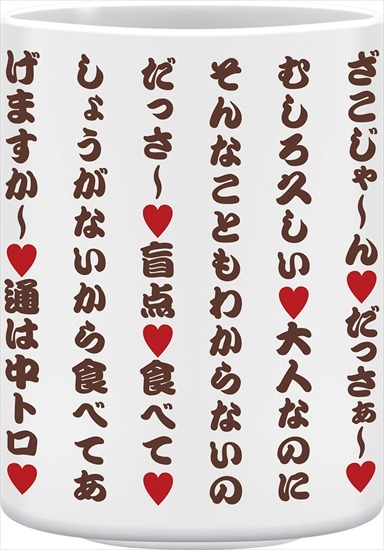 ざこじゃ～ん♥だっさぁ～♥
むしろ久しい♥大人なのに
そんなこともわからないの
だっさ～♥盲点♥食べて♥
しょうがないから食べてあ
げますか～♥通は中トロ♥